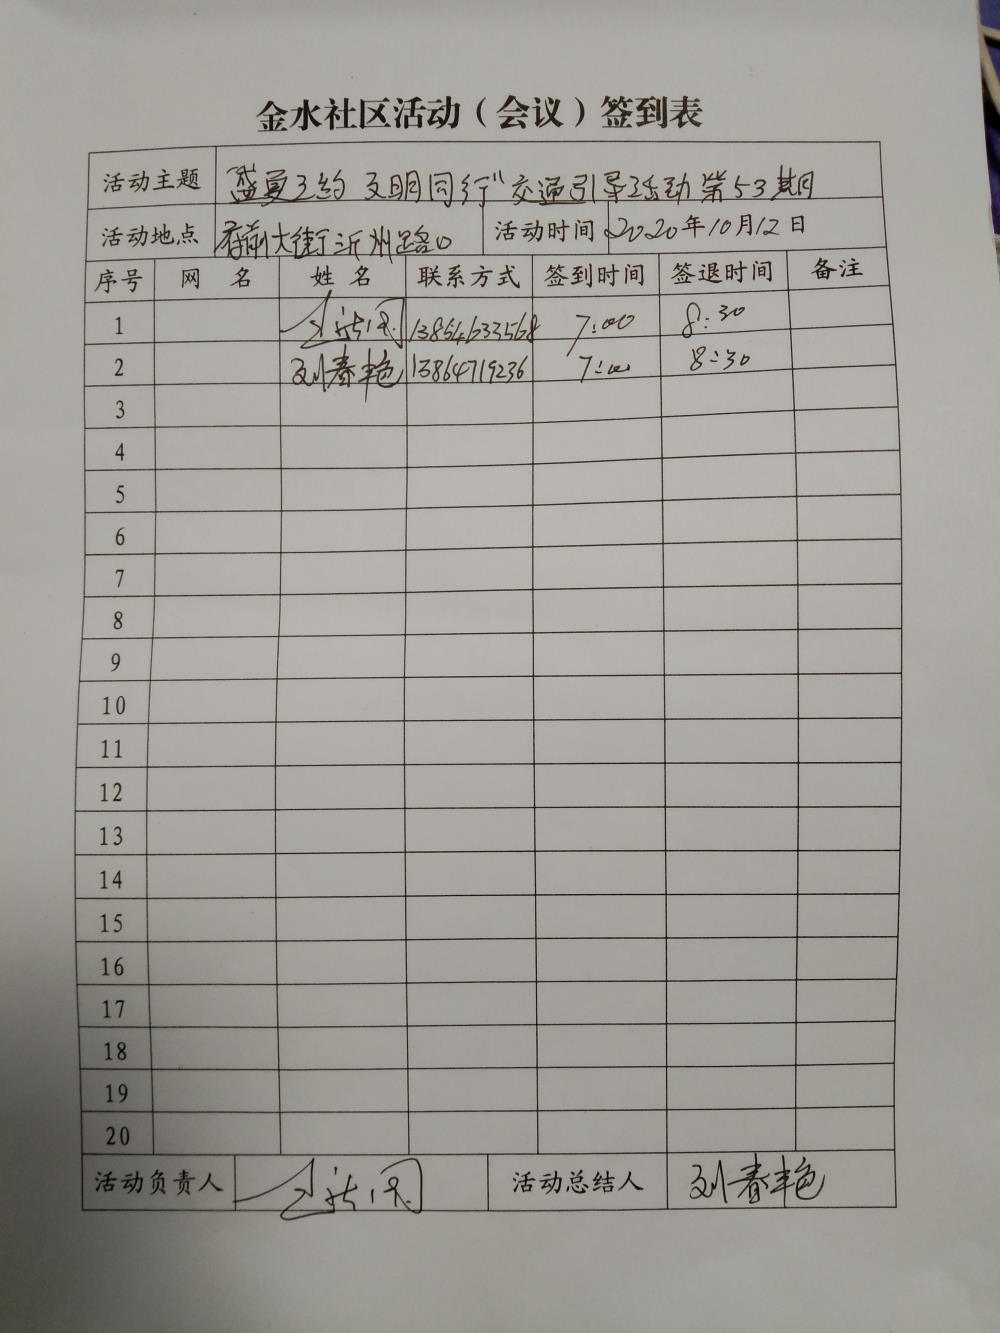 金水社区活动（会议）签到表
活动主题 盛夏之约 文明同行"交通引导活动 第53期
活动地点 府前大街沂州路口 活动时间 2020年10月12日
序号 网 名 姓 名 联系方式 签到时间 签退时间 备注
1 13854633568 7:00 8:30
2 刘春艳 13864719236 7:00 8:30
3
4
5
6
7
8
9
10
11
12
13
14
15
16
17
18
19
20
活动负责人 活动总结人 刘春艳